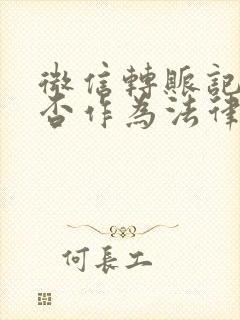 微信轉賬記
否作為法律
何長工